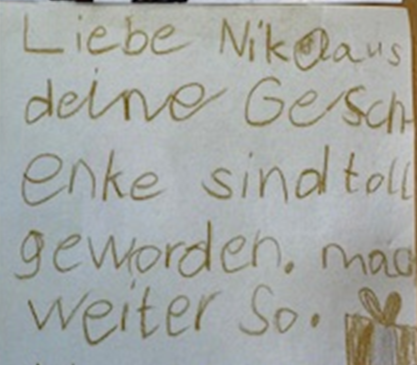 Liebe Nikolaus
deine Gesch
enke sind toll
geworden. mac
weiter So.